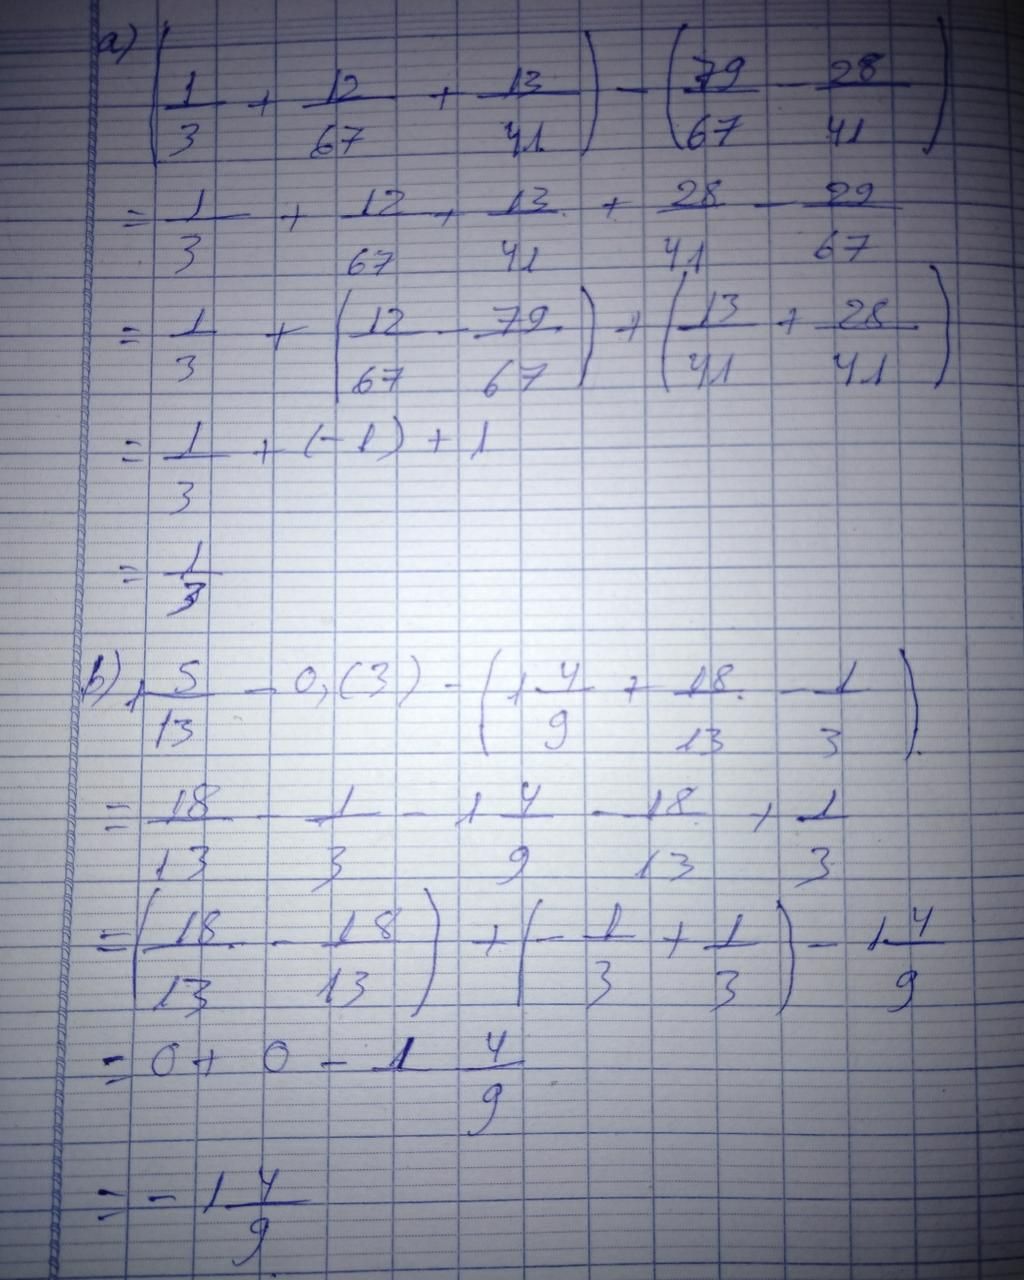 a) (1/3 + 12/67 + 13/41) - (79/67 - 28/41)
= 1/3 + 12/67 + 13/41 + 28/41 - 79/67
= 1/3 + (12/67 - 79/67) + (13/41 + 28/41)
= 1/3 + (-1) + 1
= 1/3
b) 1 5/13 - 0,(3) - (1 4/9 + 18/13 - 1/3)
= 18/13 - 1/3 - 1 4/9 - 18/13 + 1/3
= (18/13 - 18/13) + (- 1/3 + 1/3) - 1 4/9
= 0 + 0 - 1 4/9
= - 1 4/9